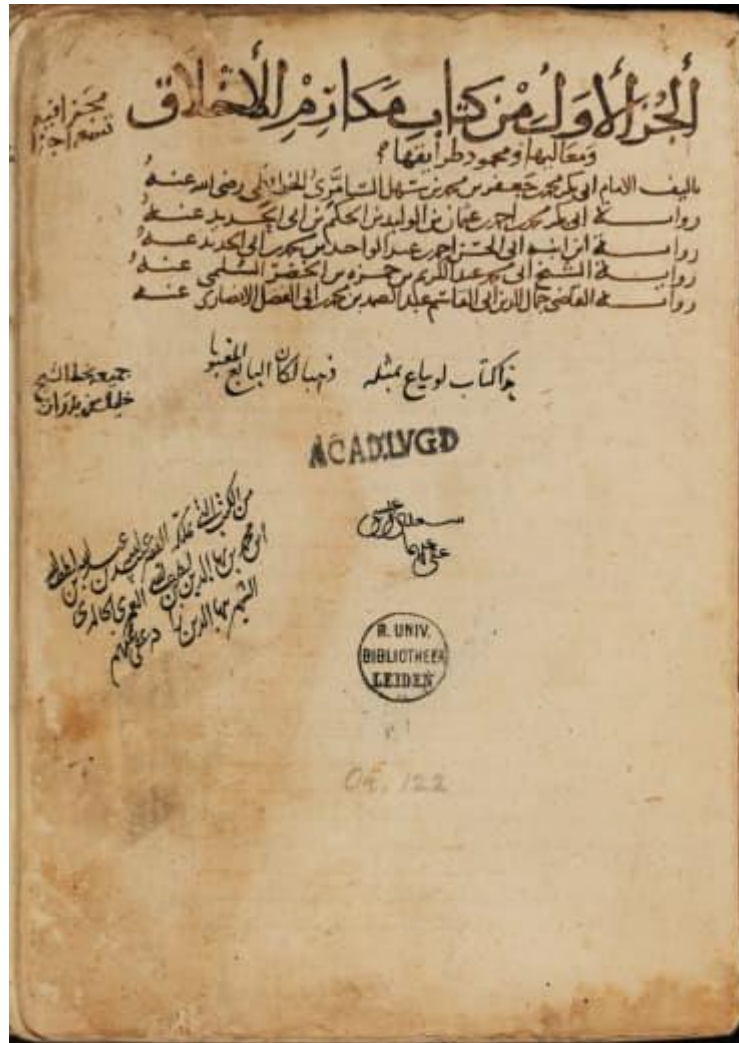 الجزء الأول من كتاب مكارم الأخلاق
ومعاليها ومحمود طرايقها
مجزا فيه
تسعة اجزا
تاليف الامام ابى بكر محمد بن جعفر بن محمد بن سهل السامرى الخرائطى رضى الله عنه
رواية ابى بكر محمد بن احمد بن عثمان بن الوليد بن الحكم بن ابى الحديد عنه
رواية ابن ابنه ابى الحسن احمد بن عبد الواحد بن محمد بن ابى الحديد عنه
رواية الشيخ ابى محمد عبد الكريم بن حمزه بن الخضر السلمى عنه
رواية القاضى جمال الدين ابى القاسم عبد الصمد بن محمد بن ابى الفضل الانصارى عنه
هذا كتاب لو يباع بمثله ذهبا لكان البايع المغبونا
جميعه بخط الشيخ
خليل بن بدران
ACAD. LVGD
من الكتب التى
ابن محمد بن بها الدين بن العمرى
الشهير بها الدين
R. UNIV.
BIBLIOTHEEK
LEIDEN
Or. 122